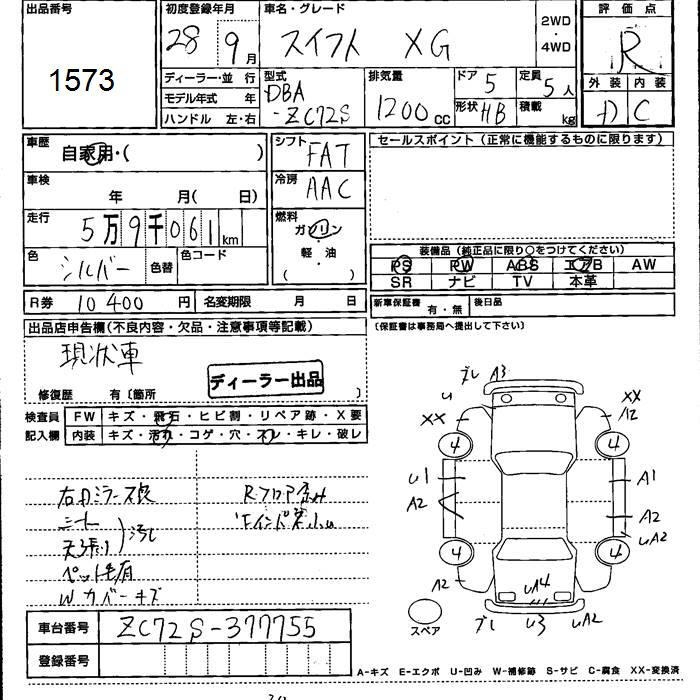 出品番号
1573
初度登録年月
28 9月
車名・グレード
スイフト XG
2WD
・
4WD
評価点
R
外装 内装
D C
ディーラー・並 行
モデル年式 年
ハンドル 左・右
型式
DBA
-ZC72S
排気量
1200cc
ドア 5
形状 HB
定員 5人
積載 kg
車歴
自家用・( )
車検
年 月( 日)
走行
5万9千061km
色
シルバー
色替
色コード
シフト
FAT
冷房
AAC
燃料
ガソリン
・
軽・油
( )
セールスポイント(正常に機能するものに限ります)
装備品(純正品に限り○をつけてください)
PS PW ABS エアB AW
SR ナビ TV 本革
R券 10400円 名変期限 月 日
新車保証書 有・無 後日品
(保証書は事務局へ提出して下さい)
出品店申告欄(不良内容・欠品・注意事項等記載)
現状車
ディーラー出品
修復歴 有〔箇所 〕
検査員 FW キズ・飛石・ヒビ割・リペア跡・X要
記入欄 内装 キズ・汚れ・コゲ・穴・スレ・キレ・破レ
右ドミラーステ
シート
天張り 汚れ
ペット毛有
Wカバーキズ
Rフロア
ズレ A3
U XX
XX A2
4 4
U1 A1
A2 A2
UA2
4 4
A2 A2
UA4
ズレ U3 UA2
スペア
車台番号 ZC72S-377755
登録番号
A-キズ E-エクボ U-凹み W-補修跡 S-サビ C-腐食 XX-変換済